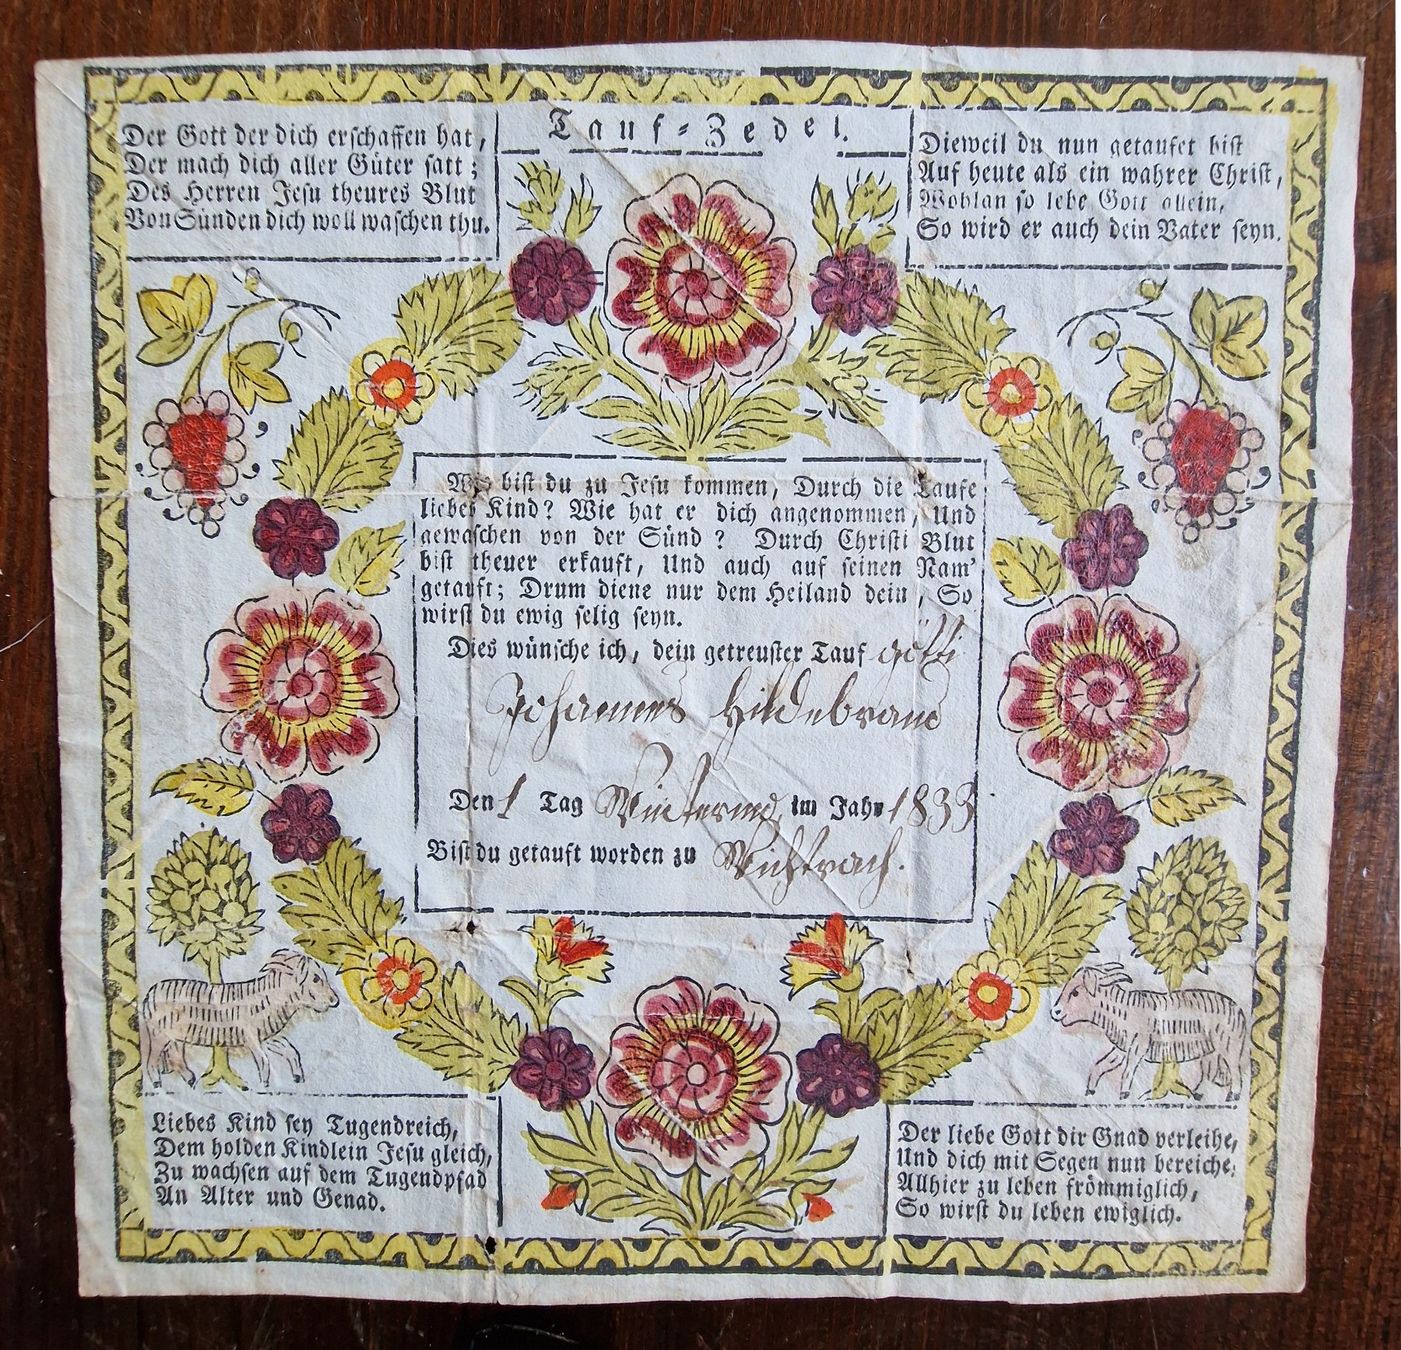 Tauf-Zedel.
Der Gott der dich erschaffen hat,
Der mach dich aller Güter satt;
Des Herren Jesu theures Blut
Von Sünden dich woll waschen thu.
Dieweil du nun getaufet bist
Auf heute als ein wahrer Christ,
Wohlan so lebe Gott allein,
So wird er auch dein Vater seyn.
Wie bist du zu Jesu kommen, Durch die Taufe
liebes Kind? Wie hat er dich angenommen, Und
gewaschen von der Sünd? Durch Christi Blut
bist theuer erkauft, Und auch auf seinen Nam'
getauft; Drum diene nur dem Heiland dein, So
wirst du ewig selig seyn.
Dies wünsche ich, dein getreuster Tauf götti
Johannes Hildebrand
Den 1 Tag Wintermo im Jahr 1833.
Bist du getauft worden zu Wichtrach.
Liebes Kind sey Tugendreich,
Dem holden Kindlein Jesu gleich,
Zu wachsen auf dem Tugendpfad
An Alter und Genad.
Der liebe Gott dir Gnad verleihe,
Und dich mit Segen nun bereiche,
Allhier zu leben frömmiglich,
So wirst du leben ewiglich.